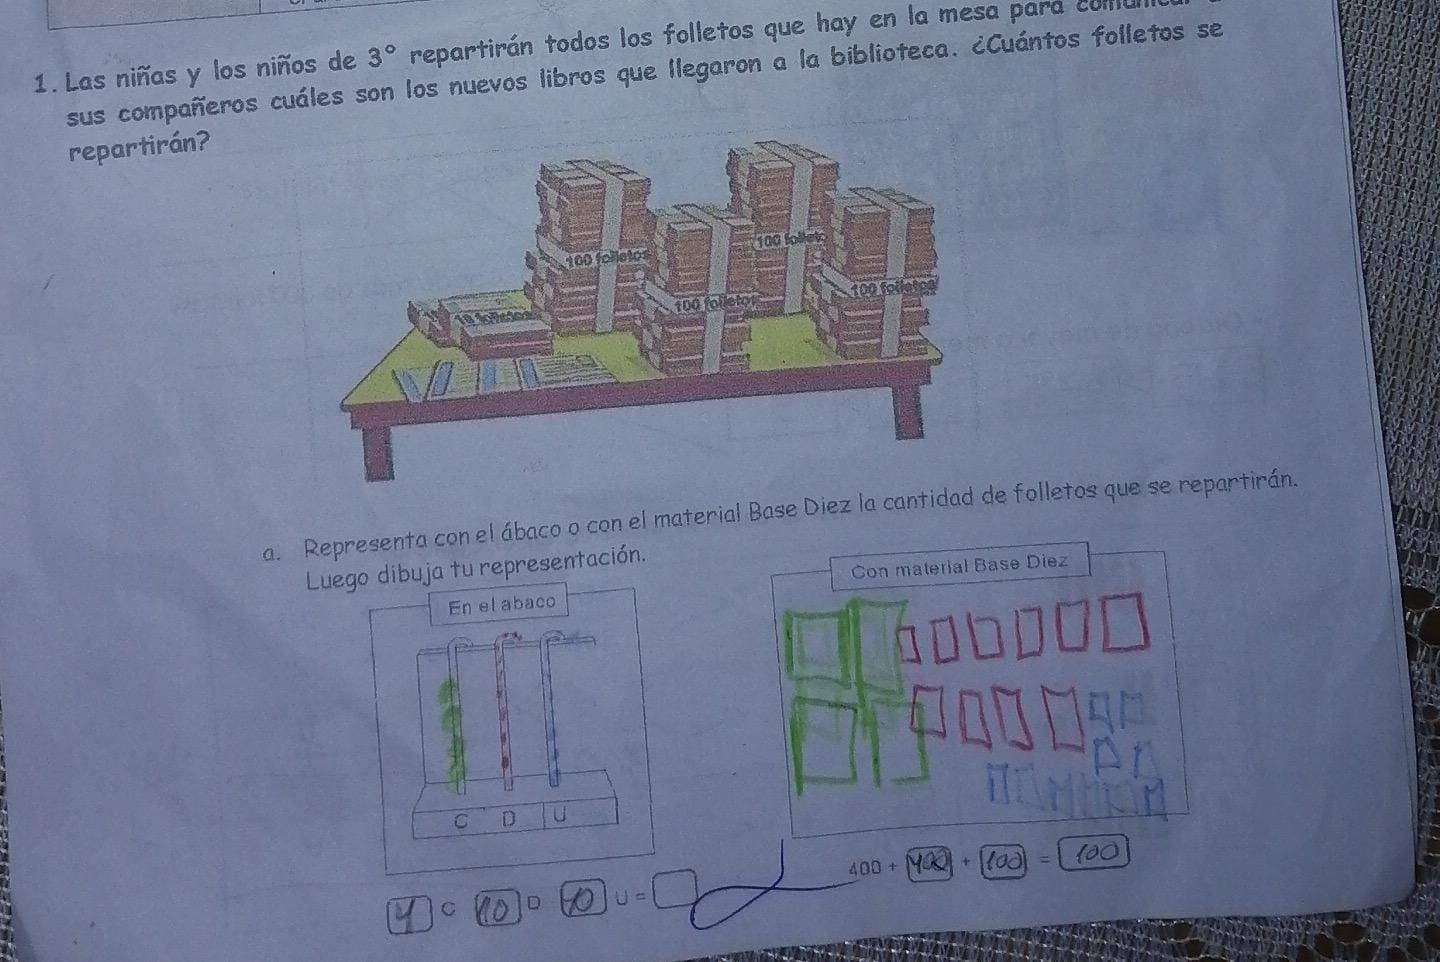 1. Las niñas y los niños de 3° repartirán todos los folletos que hay en la mesa para
sus compañeros cuáles son los nuevos libros que llegaron a la biblioteca. ¿Cuántos folletos se
repartirán?
100 folletos
100 folletos
100 folletos
100 folletos
10 folletos
a. Representa con el ábaco o con el material Base Diez la cantidad de folletos que se repartirán.
Luego dibuja tu representación.
En el abaco
Con material Base Diez
C D U
400 + 400 + 100 = 100
4 C 10 D 10 U =